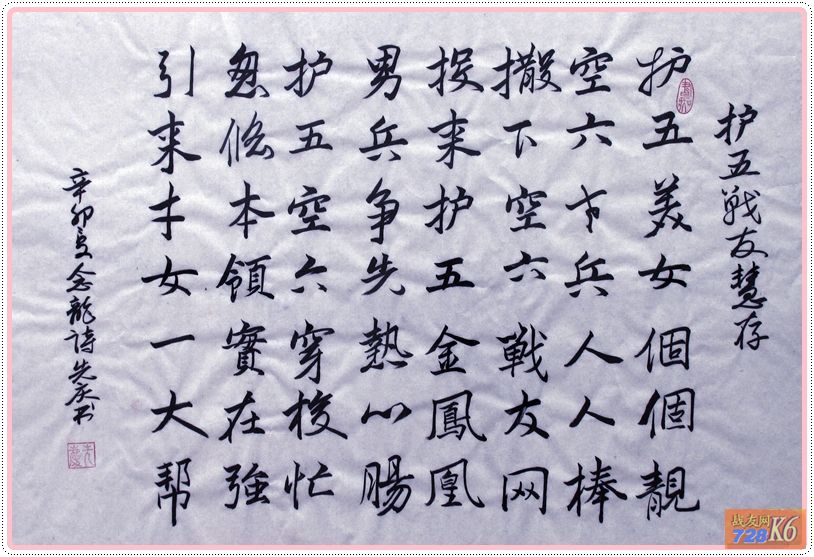 护五戰友慧存
护五美女個個靚
空六兵人人棒
撒下空六戰友网
投来护五金鳳凰
男兵争先熱心腸
护五空六穿梭忙
忽悠本領實在強
引来才女一大帮
辛卯夏念龍詩先庆书
战友网
728 K6